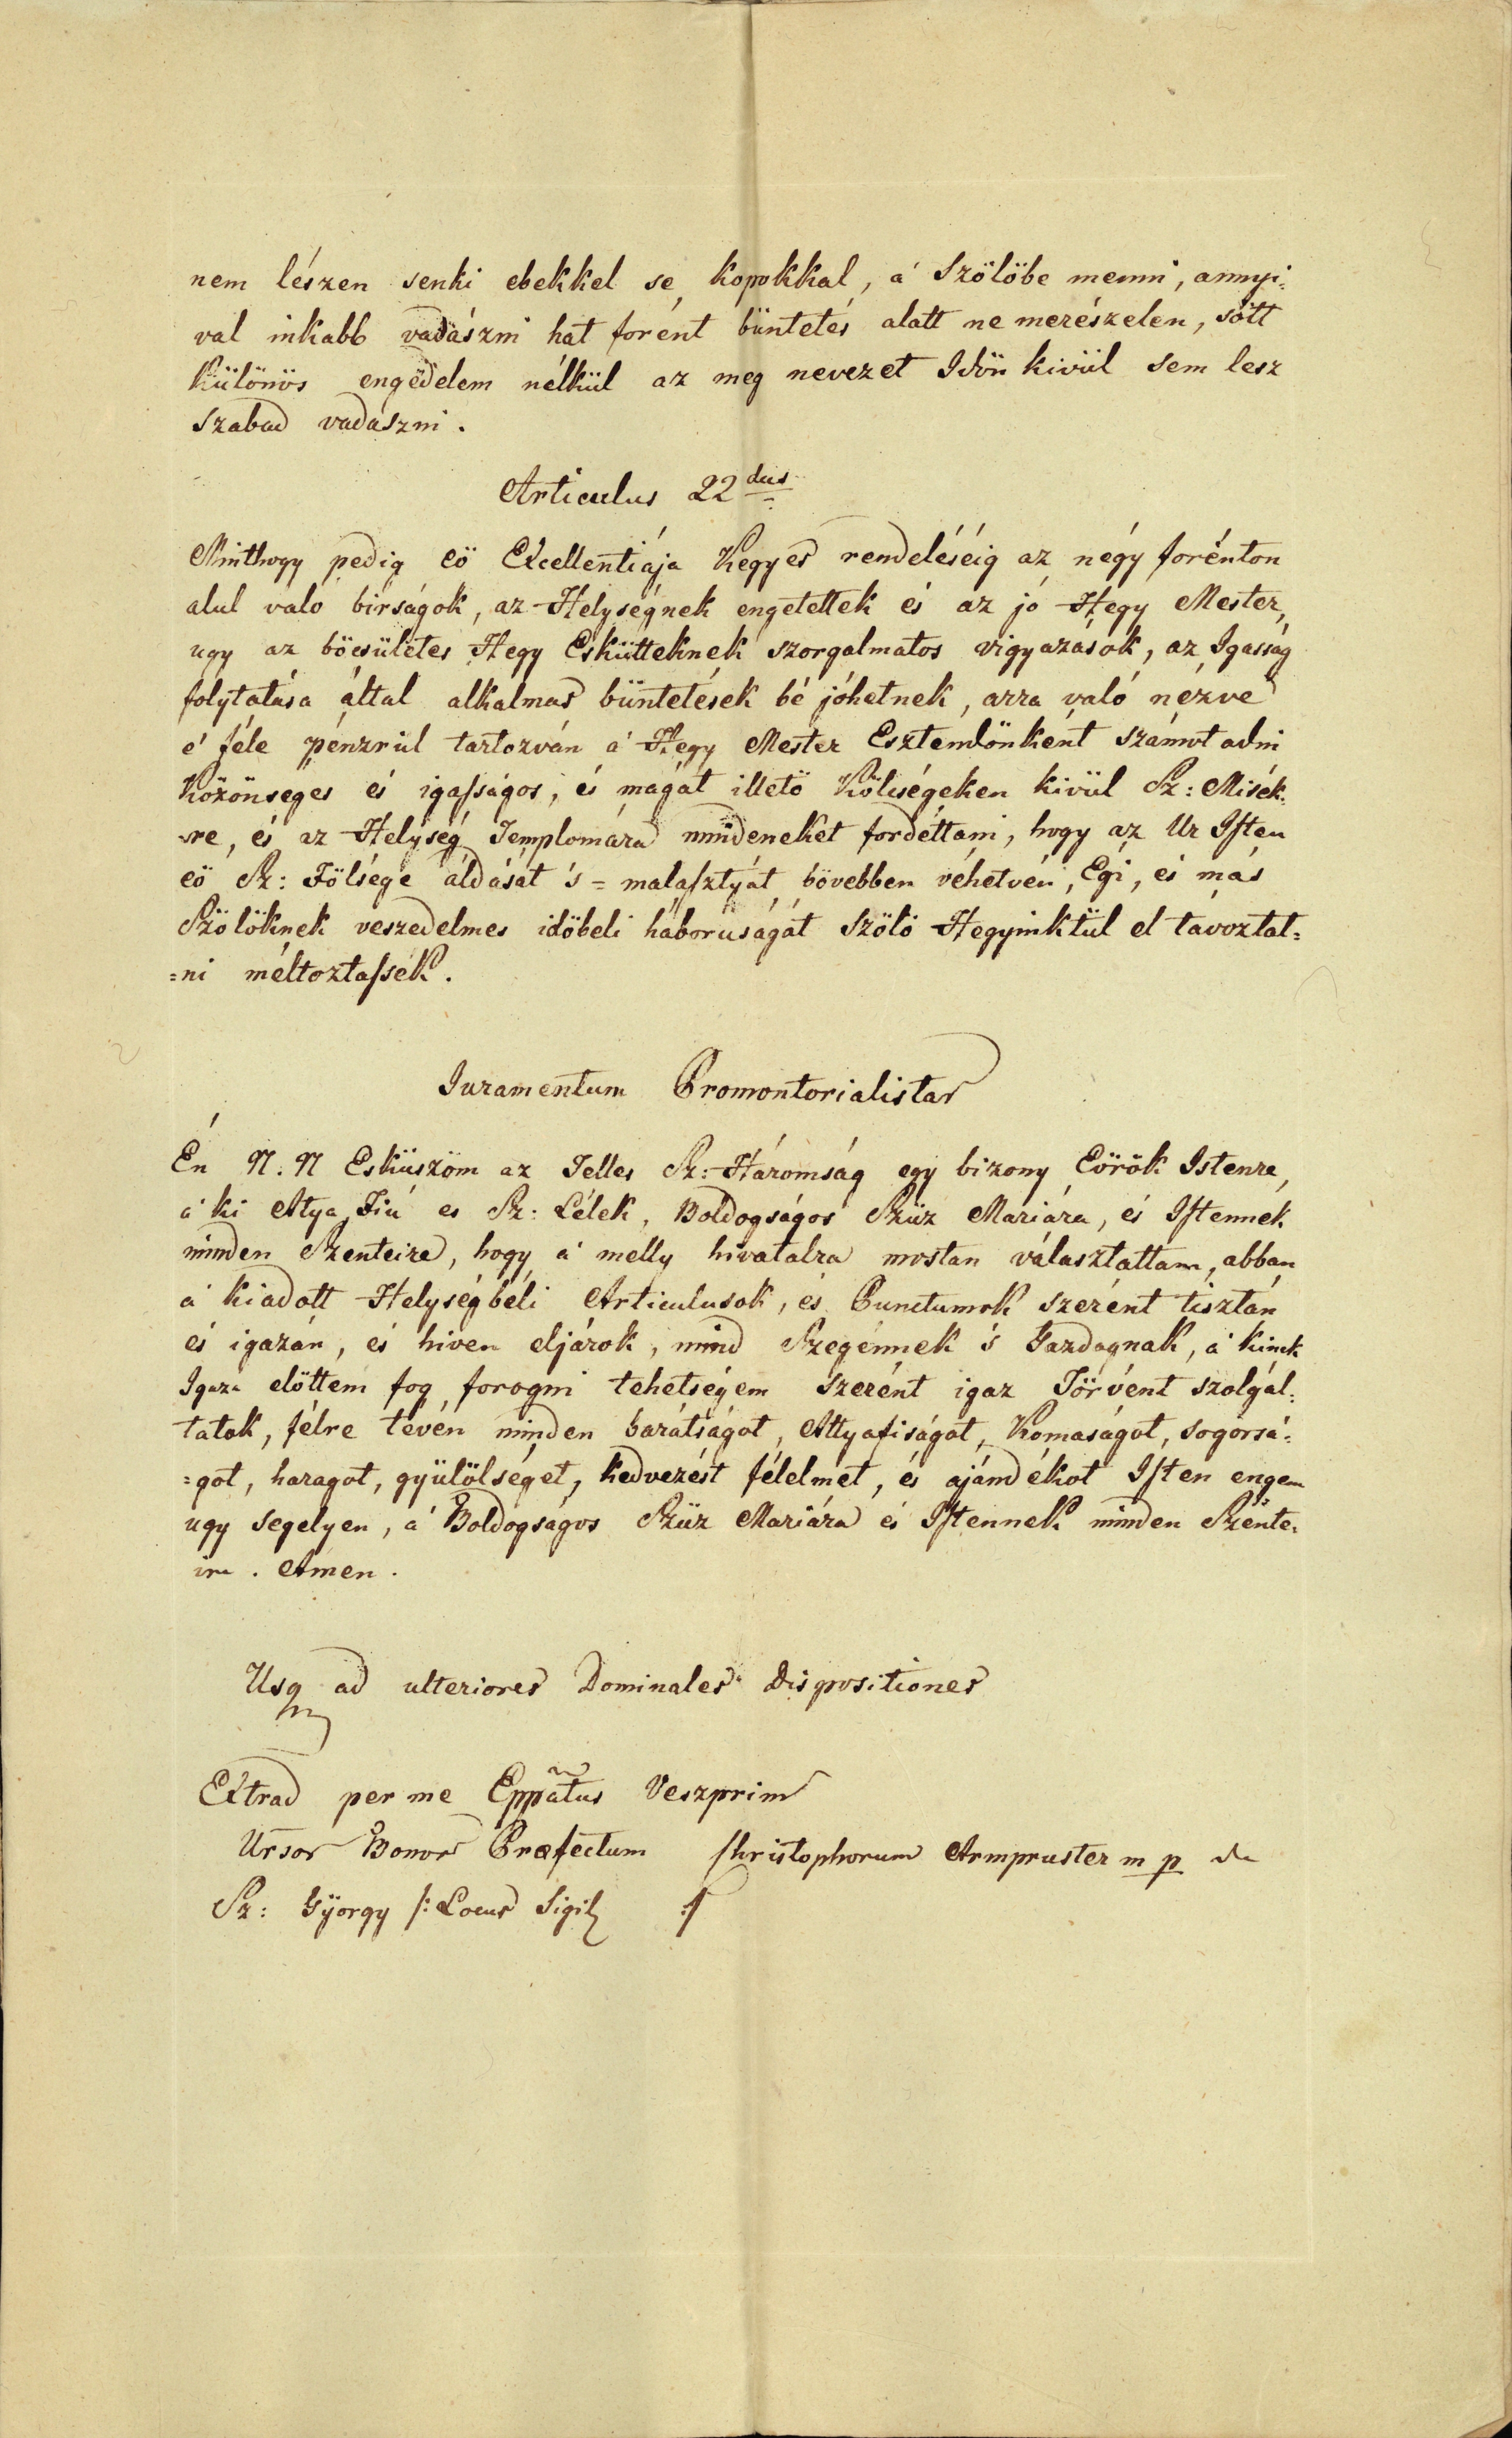 nem lészen senki ebekkel se, kopokkal, á Szölöbe menni, annyi-
val inkabb vadászni hat forént büntetés alatt ne merészelen, sött
Különös engedelem nélkül az meg nevezet Idön kivül sem lesz
szabad vadászni.
Articulus 22dus
Minthogy pedig eö Excellentiája Kegyes rendeléséig az négy forénton
alul való birságok, az Helységnek engetettek és az jó Hegy Mester,
ugy az böcsületes Hegy Eskütteknek szorgalmatos vigyazások, az Igasság
folytatása által alkalmas büntetések bé jöhetnek, arra való nézve
é féle pénzrül tartozván á Hegy Mester Esztendönként számot adni
Közönséges és igasságos, és magát illetö Költségeken kivül Sz: Misék-
re, és az Helység Templomára mindeneket fordéttani, hogy az Ur Isten
eö Sz: Fölsége áldását 's=malasztyát bövebben véhetvén, Egi, és más
Szölöknek veszedelmes idöbeli háboruságát Szölö Hegyinktül el távoztat=
=ni méltoztassék.
Iuramentum Promontorialistar
Én N. N Esküszöm az Telles Sz: Háromság egy bizony Eörök Istenre,
á ki Atya, Fiú es Sz: Lélek, Boldogságos Szüz Mariára, és Istennek
minden Szenteire, hogy á melly hivatalra mostan választattam, abban
á kiadott Helységbéli Articulusok, és Punctumok szerént tisztán
és igazán, és hiven eljárok, mind Szegénnek 's Gazdagnak, á kinek
Igaza elöttem fog forogni tehetségem szerént igaz Törvént szolgál-
tatok, félre tévén minden barátságot, Attyafiságot, Komaságot, sogorsá-
=got, haragot, gyülölséget, kedvezést félelmet, és ajándékot Isten engem
ugy segelyen, á Boldogságos Szüz Mariára és Istennek minden Szénte-
ire. Amen.
Usq ad ulteriores Dominales Dispositiones
Extrad per me Eppatus Veszprim
Ursor Bonor Præfectum Christophorum Armpruster m p de
Sz: György /: Locus Sigil :/